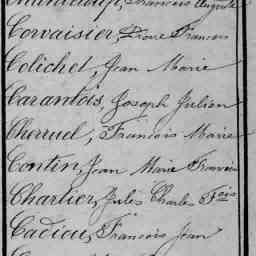 François Auguste
Corvaisier, Pierre François
Colichet, Jean Marie
Carantois, Joseph Julien
Cherruel, François Marie
Contin, Jean Marie François
Chartier, Jules Charles Fois
Cadiou, François Jean